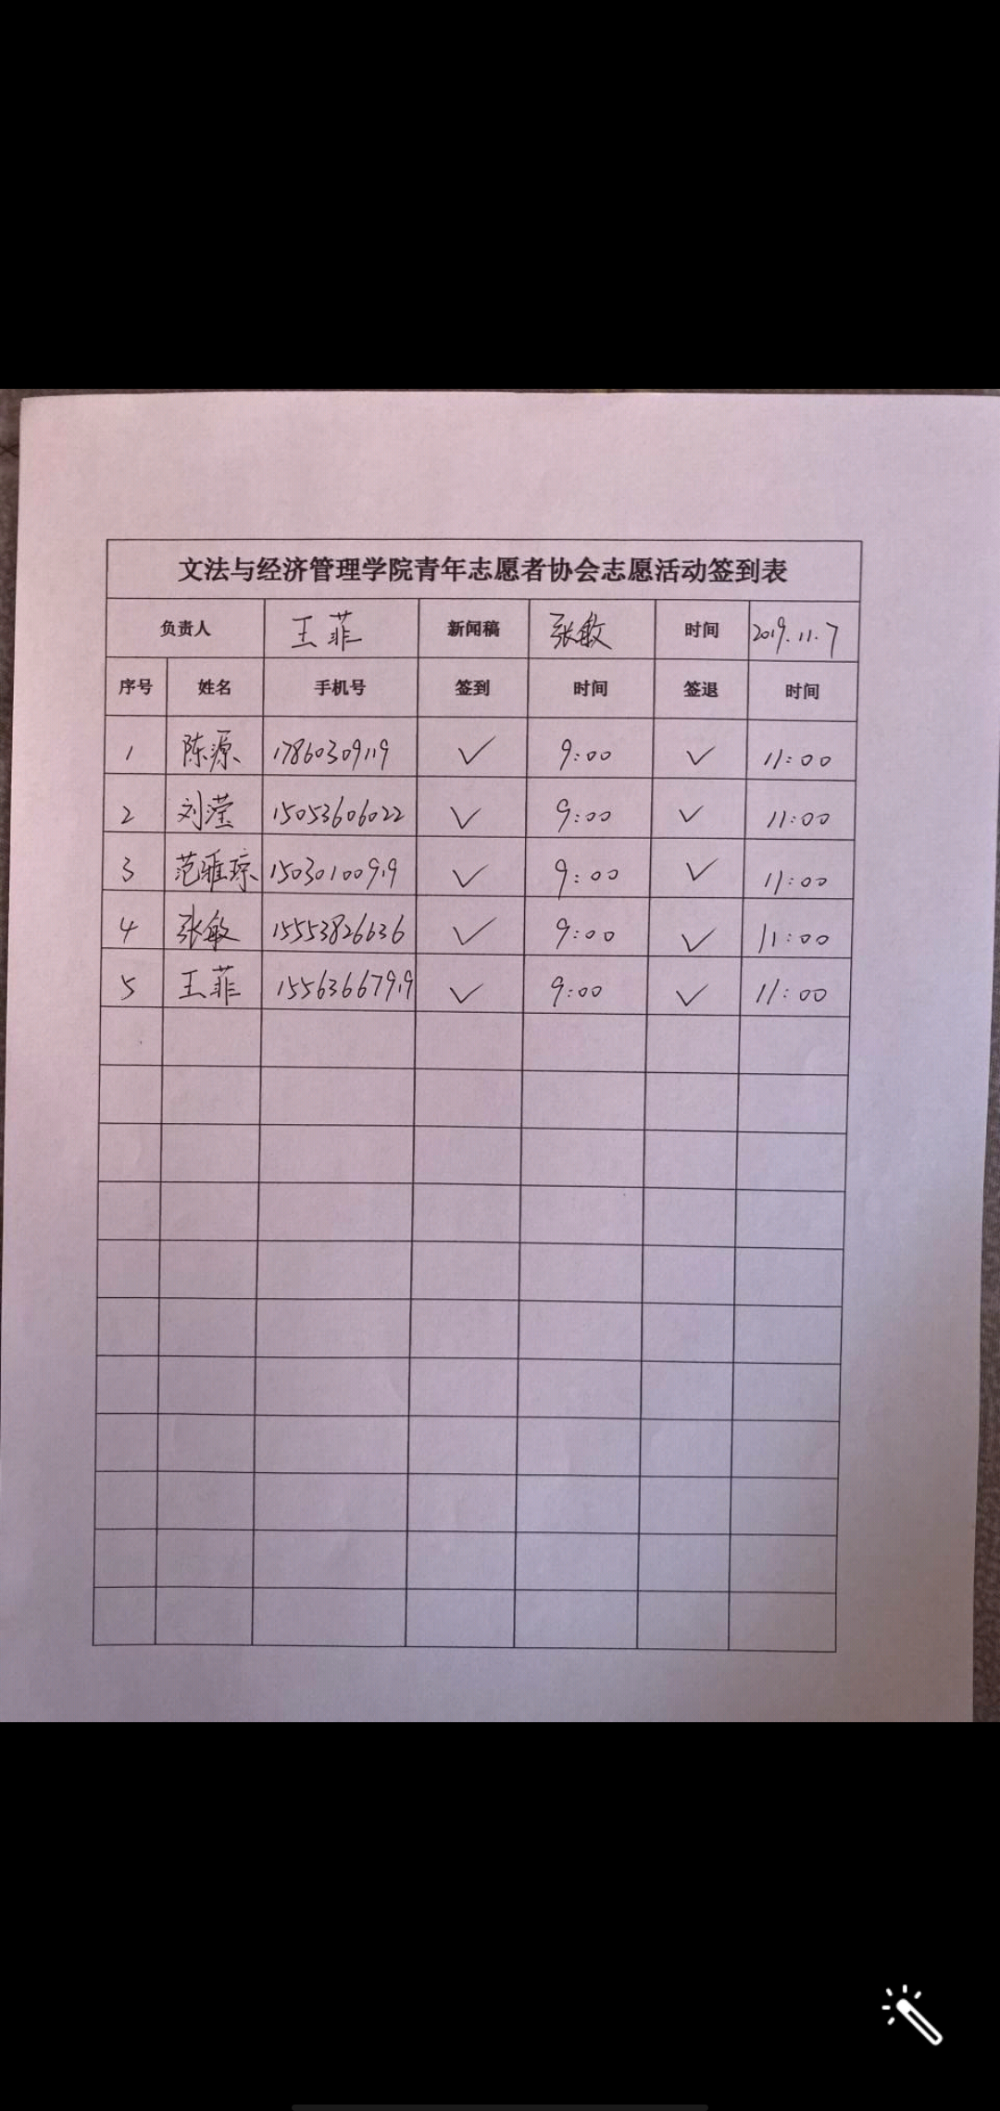 文法与经济管理学院青年志愿者协会志愿活动签到表
负责人 王菲 新闻稿 张敏 时间 2019.11.7
序号 姓名 手机号 签到 时间 签退 时间
1 陈源 17860309119 ✓ 9:00 ✓ 11:00
2 刘滢 15053606022 ✓ 9:00 ✓ 11:00
3 范雅琼 15030100919 ✓ 9:00 ✓ 11:00
4 张敏 15553826636 ✓ 9:00 ✓ 11:00
5 王菲 15563667919 ✓ 9:00 ✓ 11:00